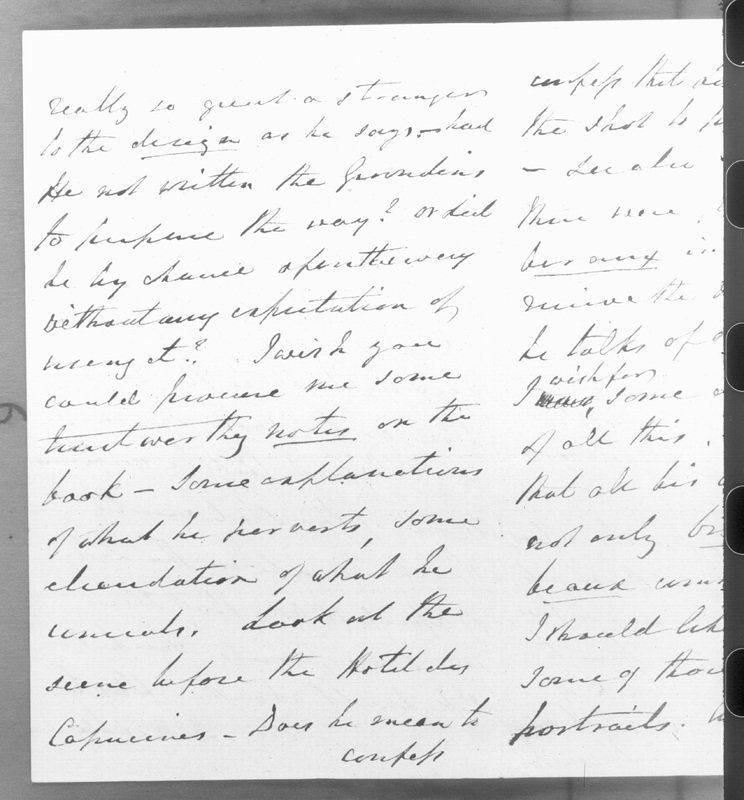 really so great a stranger
to the design as he says - had
He not written the Girondins
to prepare the way? or did
he by chance open the way
without any expectation of
using it? I wish you
could procure me some
trustworthy notes on the
book - Some explanations
of what he perverts, some
elucidation of what he
conceals. Look at the
scene before the Hotel des
Capucines - Does he mean to
confess
confess that
the shot to
- See also
there were
he talks of
wish for
I some
of all this.
that all his
not only
beaux
I should
Some of
portraits.